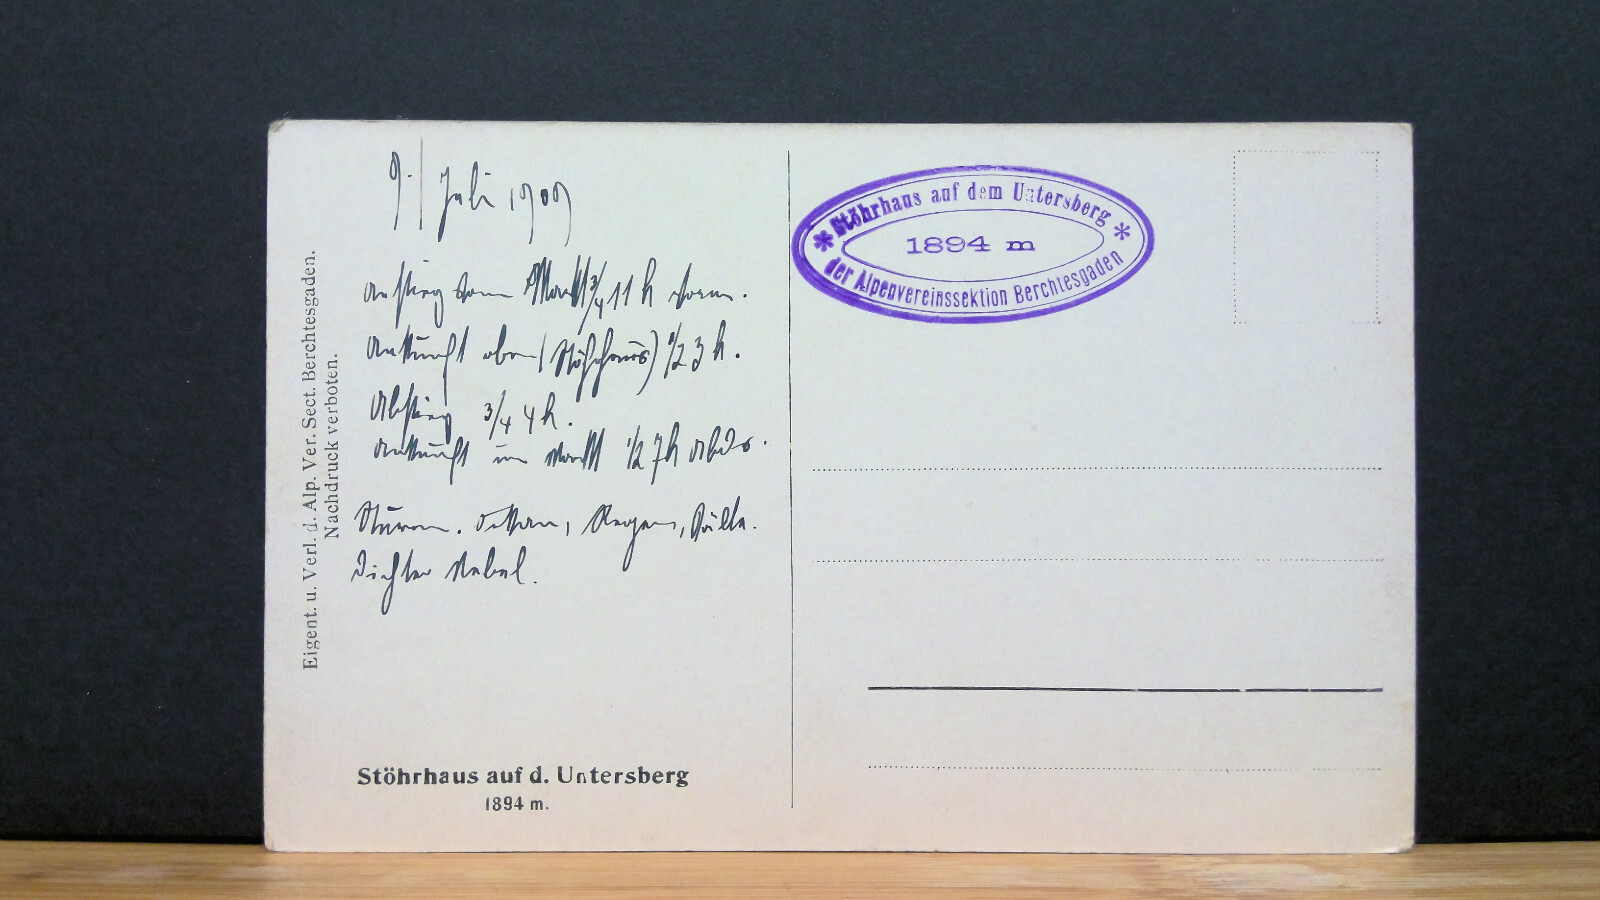 9. | Juli 1909
Anstieg vom Markt 3/4 11 h vorm.
Ankunft oben (Stöhrhaus) 1/2 3 h.
Abstieg 3/4 4 h.
Ankunft im Markt 1/2 7 h Abds.
Sturm. Regen, Kälte.
Dichter Nebel.
Eigent. u. Verl. d. Alp. Ver. Sect. Berchtesgaden.
Nachdruck verboten.
Stöhrhaus auf d. Untersberg
1894 m.
* Stöhrhaus auf dem Untersberg *
1894 m
der Alpenvereinssektion Berchtesgaden